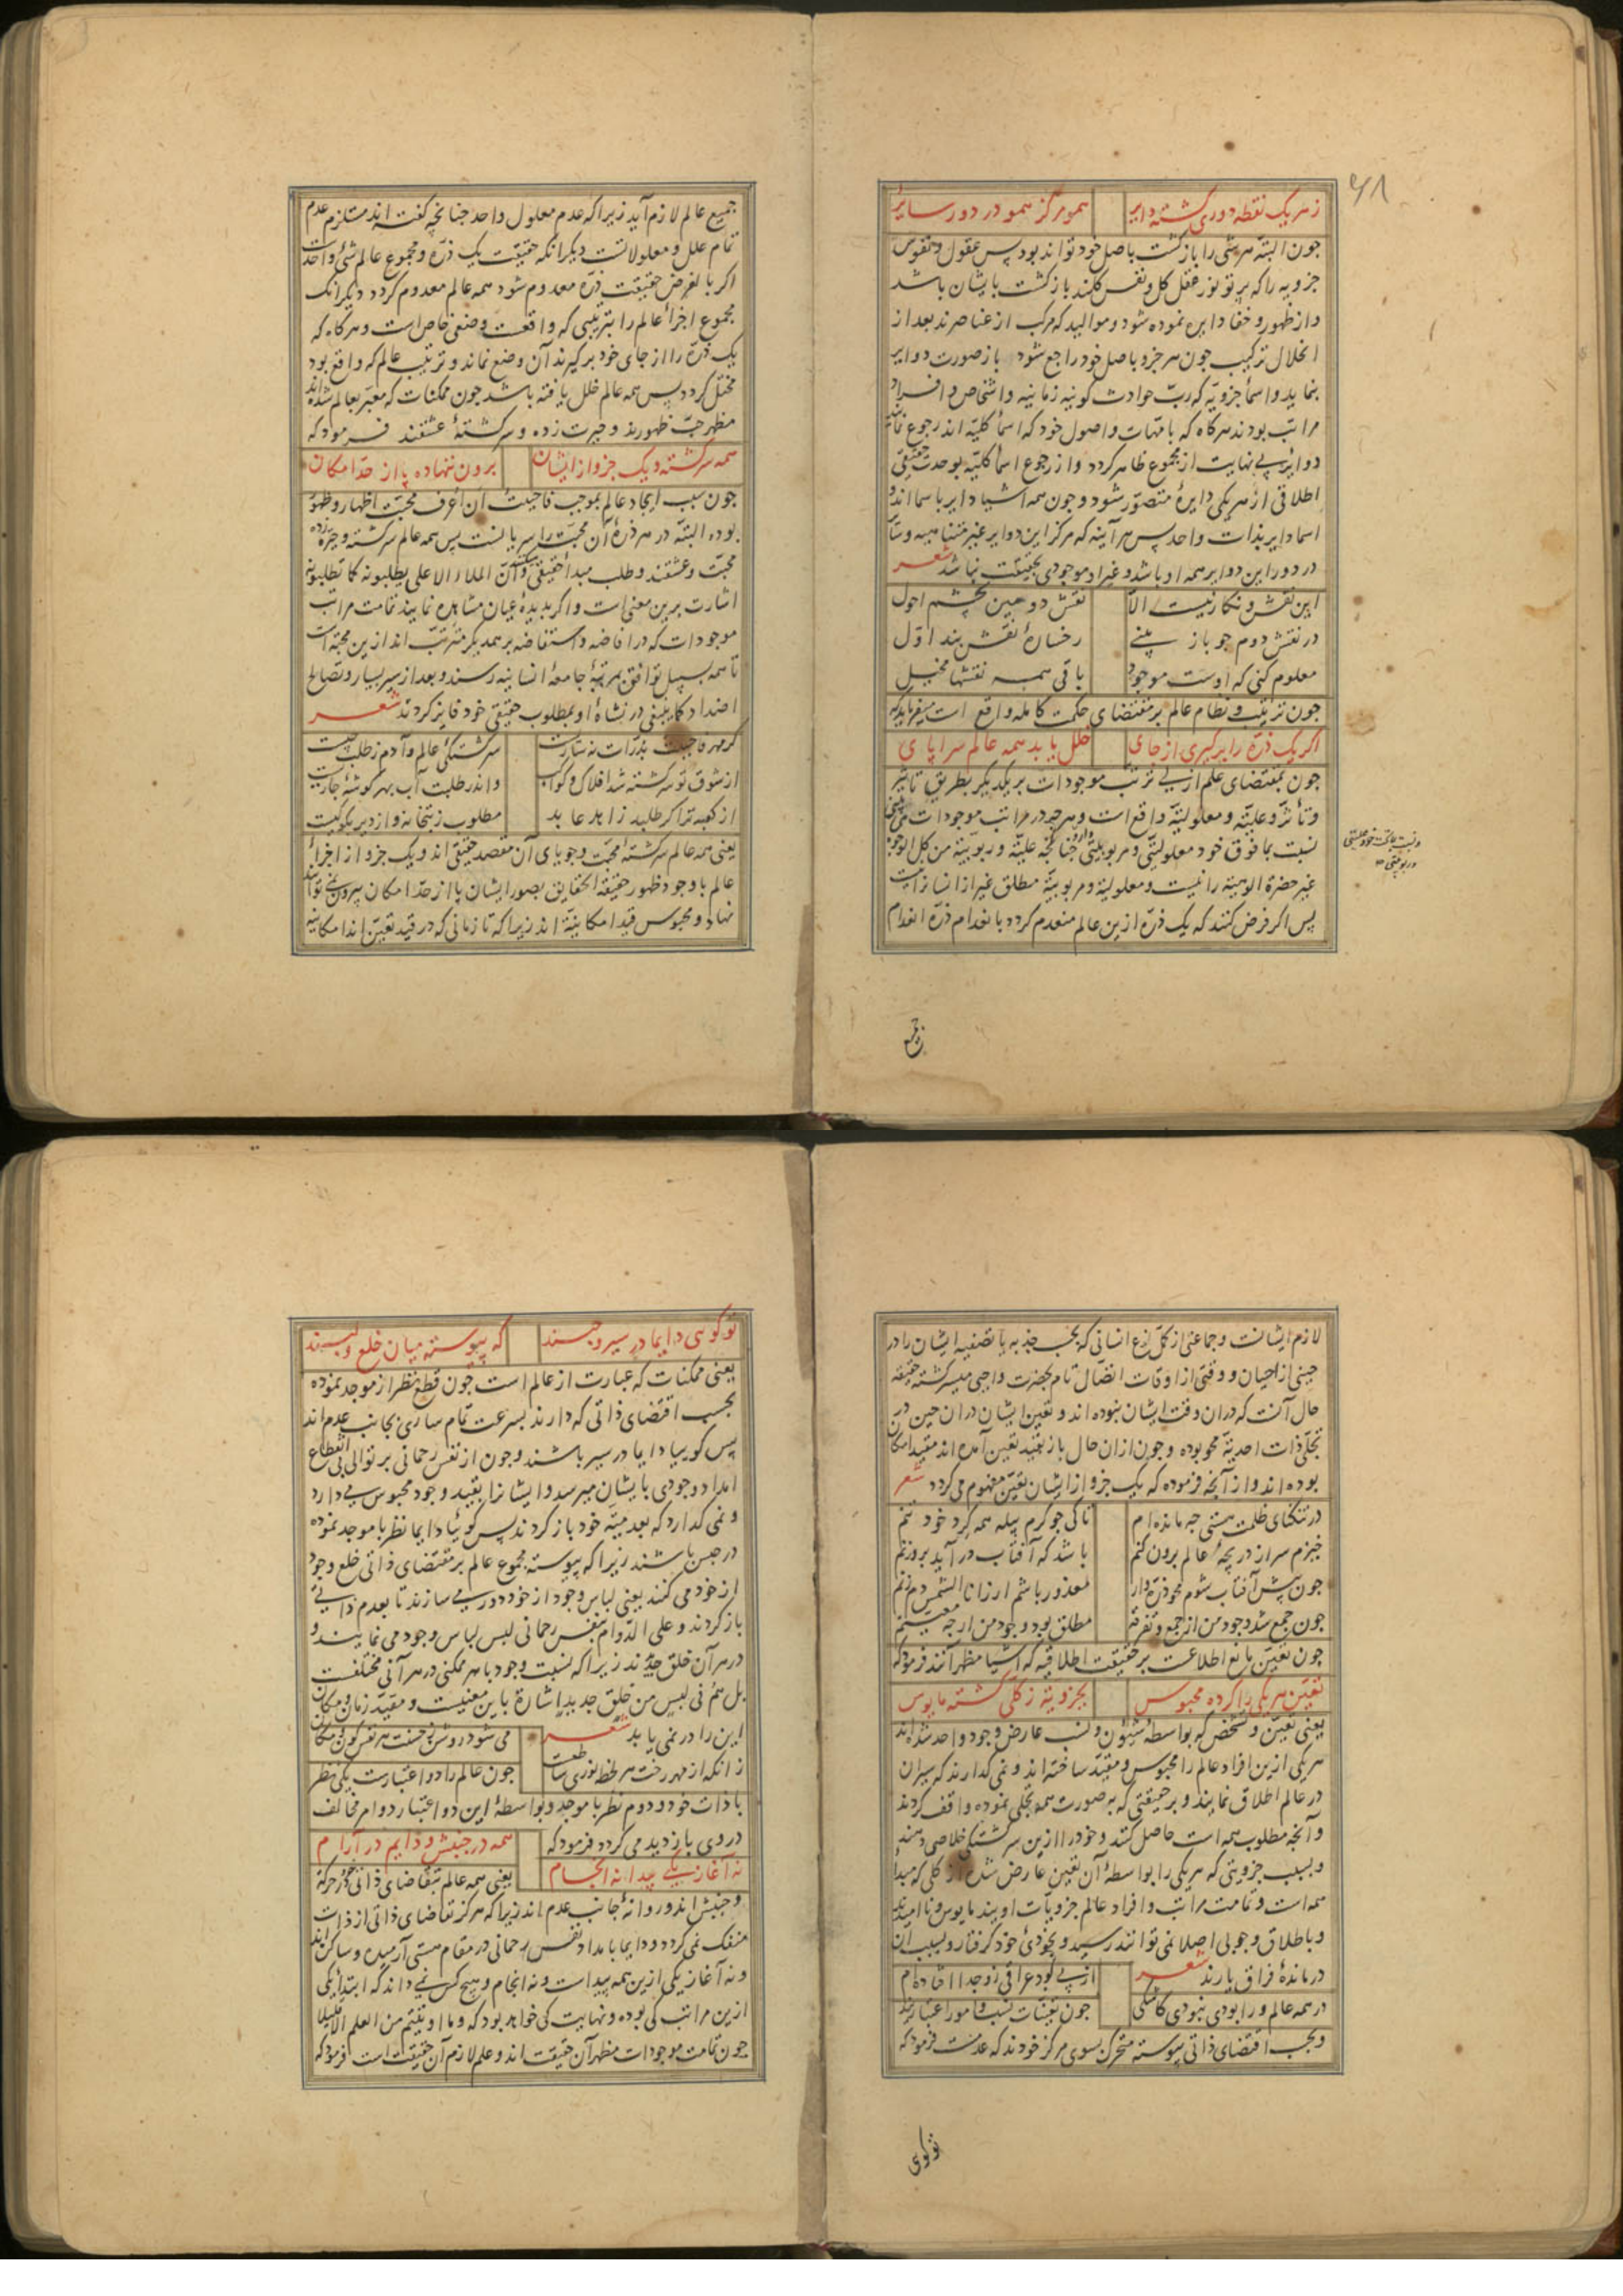 ۶۸
زهر یک نقطه دوری گشته دایر همو مرکز همو در دور سایر
جون البته هر شی را بازکشت باصل خود تواند بود پس عقول و نفوس
جزویه را که پرتو نور عقل کل و نفس کلند بازکشت بایشان باشد
و از ظهور و خفا دایره نموده شود و موالید که مرکب از عناصرند بعد از
انحلال ترکیب جون هر جزو باصل خود راجع شود باز صورت دوایر
بنماید و اسمأ جزویه که رب حوادث کونیه زمانیه و اشخاص و افراد
مراتب بودند هرکاه که بامهات و اصول خود که اسمأ کلیه اند رجوع نمایند
دوایر بی نهایت از مجموع ظاهر کردد و از رجوع اسما کلیه بوحدت حقیقی
اطلاقی از هر یکی دایرهٔ متصور شود و جون همه اشیا دایر باسمااند و
اسما دایر بذات واحد پس هر آینه که مرکز این دوایر غیر متناهیه و سایر
در دور این دوایر همه او باشد و غیر او موجودی بحقیقت نباشد شعر
این نقش و نکار نیست الا نقش دومین بچشم احول
در نقش دوم جو باز بینی رخسارهٔ نقش بند اول
معلوم کنی که اوست موجود باقی همه نقشها مخیل
جون ترتیب و نظام عالم بر مقتضای حکمت کامله واقع است میفرماید که
اکر یک ذره را برکیری از جای خلل یابد همه عالم سراپای
جون بمقتضای علم ازلی ترتب موجودات بر یکدیکر بطریق تأثیر
و تأثر و علیة و معلولیة واقع است و هرجه در مراتب موجودات می بینی
نسبت بما فوق خود معلولیتی و مربوبیتی دارد جنانجه علیة و ربوبیة من کل الوجوه
و نسبت بماتحت خود علیتی
و ربوبیتی
غیر حضرة الوهیة را نیست و معلولیة و مربوبیة مطلق غیر از انسانرا نیست
پس اکر فرض کنند که یک ذره ازین عالم منعدم کردد بانعدام ذره انعدام
جمیع
جمیع عالم لازم آید زیرا که عدم معلول واحد جنانجه کفته اند مستلزم عدم
تمام علل و معلولاتست دیکر انکه حقیقت یک ذره و مجموع عالم شئ واحدست
اکر بالفرض حقیقت ذره معدوم شود همه عالم معدوم کردد دیکر انک
مجموع اجزأ عالم را بترتیبی که واقعست وضعی خاص است و هرکاه که
یک ذره را از جای خود برکیرند آن وضع نماند و ترتیب عالم که واقع بود
مختل کردد پس همه عالم خلل یافته باشد جون ممکنات که معبر بعالم شده اند
مظهر حب ظهورند و حیرت زده و سرکشتهٔ عشقند فرمود که
همه سرکشته و یک جزو از ایشان برون ننهاده پا از حد امکان
جون سبب ایجاد عالم بموجب فاحببت ان اعرف محبت اظهار و ظهور
بوده البته در هر ذرهٔ آن محبت را سریانست پس همه عالم سرکشته و حیرت زدهٔ
محبت و عشقند و طلب مبدأ حقیقی و ان الملاء الاعلی یطلبونه کما تطلبونه
اشارت برین معنی است و اکر بدیدهٔ عیان مشاهده نمایند تمامت مراتب
موجودات که در افاضه و استفاضه بر همدیکر مترتب اند ازین محبة است
تا همه بسبیل توافق بمرتبهٔ جامعهٔ انسانیه رسند و بعد از سیر بسیار و تصالح
اضداد کاینبغی در نشاهٔ او بمطلوب حقیقی خود فایز کردند شعر
کر مهر فاحببت بذرات نه ساریست سرکشتکی عالم و آدم ز طلب جیست
از شوق تو سرکشته شد افلاک و کواکب و اندر طلبت آب بهر کوشهٔ جاریست
از کعبه ترا کر طلبد زاهد عابد مطلوب ز بتخانه و از دیر بکو کیست
یعنی همه عالم سرکشتهٔ محبت و جویای آن مقصد حقیقی اند و یک جزو از اجزأ
عالم با وجود ظهور حقیقة الحقایق بصور ایشان پا از حد امکان بیرون نمی تواند
نهاد و محبوس قید امکانیة اند زیرا که تا زمانی که در قید تعین اند امکانیه
لازم ایشانست و جماعتی از کمل نوع انسانی که بحسب جذبه یا تصفیه ایشان را در
حینی از احیان و وقتی از اوقات اتصال تام بحضرت واجبی میسر کشته حقیقة
حال آنست که در ان وقت ایشان نبوده اند و تعین ایشان در ان حین در
تجلی ذات احدیة محو بوده و جون از ان حال باز بقید تعین آمده اند مقید امکان
بوده اند و از آنجه فرموده که یک جزو از ایشان تعین مفهوم می کردد شعر
در تنکنای ظلمت هستی جه مانده ام تا کی جو کرم پیله همه کرد خود تنم
خیزم سر از دریجهٔ عالم برون کنم باشد که آفتاب در آید بروزنم
جون پیش آفتاب شوم محو ذره وار معذور باشم ار ز انا الشمس دم زنم
جون جمع شد وجود من از جمع و تفرقه مطلق بود وجود من ار جه معینم
جون تعین مانع اطلاعست بر حقیقت اطلاقیه که اشیا مظهر آنند فرمود که
تعین هر یکی را کرده محبوس بجزویة ز کلی کشته مایوس
یعنی تعین و تشخص که بواسطهٔ شئون و نسب عارض وجود واحد شده اند
هر یکی ازین افراد عالم را محبوس و مقید ساخته اند و نمی کذارند که سیران
در عالم اطلاق نمایند و بر حقیقتی که بصورت همه تجلی نموده واقف کردند
و آنجه مطلوب همه است حاصل کنند و خود را ازین سرکشتکی خلاصی دهند
و بسبب جزویتی که هر یکی را بواسطهٔ آن تعین عارض شده از کلی که مبدأ
همه است و تمامت مراتب و افراد عالم جزویات اویند مایوس و ناامیدند
و باطلاق وجوبی اصلا نمی توانند رسید و بخودی خود کرفتار و بسبب آن
درماندهٔ فراق یارند شعر از پی بود عراقی زو جدا افتاده ام
در همه عالم ورا بودی نبودی کاشکی جون تعینات نسب و امور اعتباریند
و بحسب اقتضای ذاتی پیوسته متحرک بسوی مرکز خودند که عدمست فرمود که
تو کوی
تو کوی دایما در سیر و حبسند که پیوسته میان خلع و لبسند
یعنی ممکنات که عبارت از عالم است جون قطع نظر از موجد نموده
بحسب اقتضای ذاتی که دارند بسرعت تمام ساری بجانب عدم اند
پس کوییا دایما در سیر باشند و جون از نفس رحمانی بر توالی بی انقطاع
امداد وجودی بایشان میرسد و ایشانرا بقید وجود محبوس می دارد
و نمی کذارد که بعدمیة خود باز کردند پس کوئیا دایما نظر با موجد نموده
در حبس باشند زیرا که پیوسته مجموع عالم بر مقتضای ذاتی خلع وجود
از خود می کنند یعنی لباس وجود از خود دور می سازند تا بعدم ذاتی
باز کردند و علی الدوام بنفس رحمانی لبس لباس وجود می نمایند و
در هر آن خلق جدیدند زیرا که نسبت وجود با هر ممکنی در هر آنی مختلفست
بل هم فی لبس من خلق جدید اشارة باین معنیست و مقید زمان و مکان
این را در نمی یابد شعر می شود روشن ز حسنت هر نفس کون و مکان
زانکه از مهر رخت هر لحظه نوری ساطعست جون عالم را دو اعتبارست یکی نظر
با ذات خود و دوم نظر با موجد و بواسطهٔ این دو اعتبار دو امر مخالف
در وی بازدید می کردد فرمود که همه در جنبش و دایم در آرام
نه آغاز یکی پیدا نه انجام یعنی همه عالم بتقاضای ذاتی خود در حرکة
و جنبش اند و روانهٔ جانب عدم اند زیرا که هرکز تقاضای ذاتی از ذات
منفک نمی کردد و دایما بامداد نفس رحمانی در مقام هستی آرمیده و ساکن اند
و نه آغاز یکی ازین همه پیداست و نه انجام و هیچ کس نمی داند که ابتدأ یکی
ازین مراتب کی بوده و نهایت کی خواهد بود که و ما اوتیتم من العلم الا قلیلا
جون تمامت موجودات مظهر آن حقیقت اند و علم لازم آن حقیقت است فرمود که